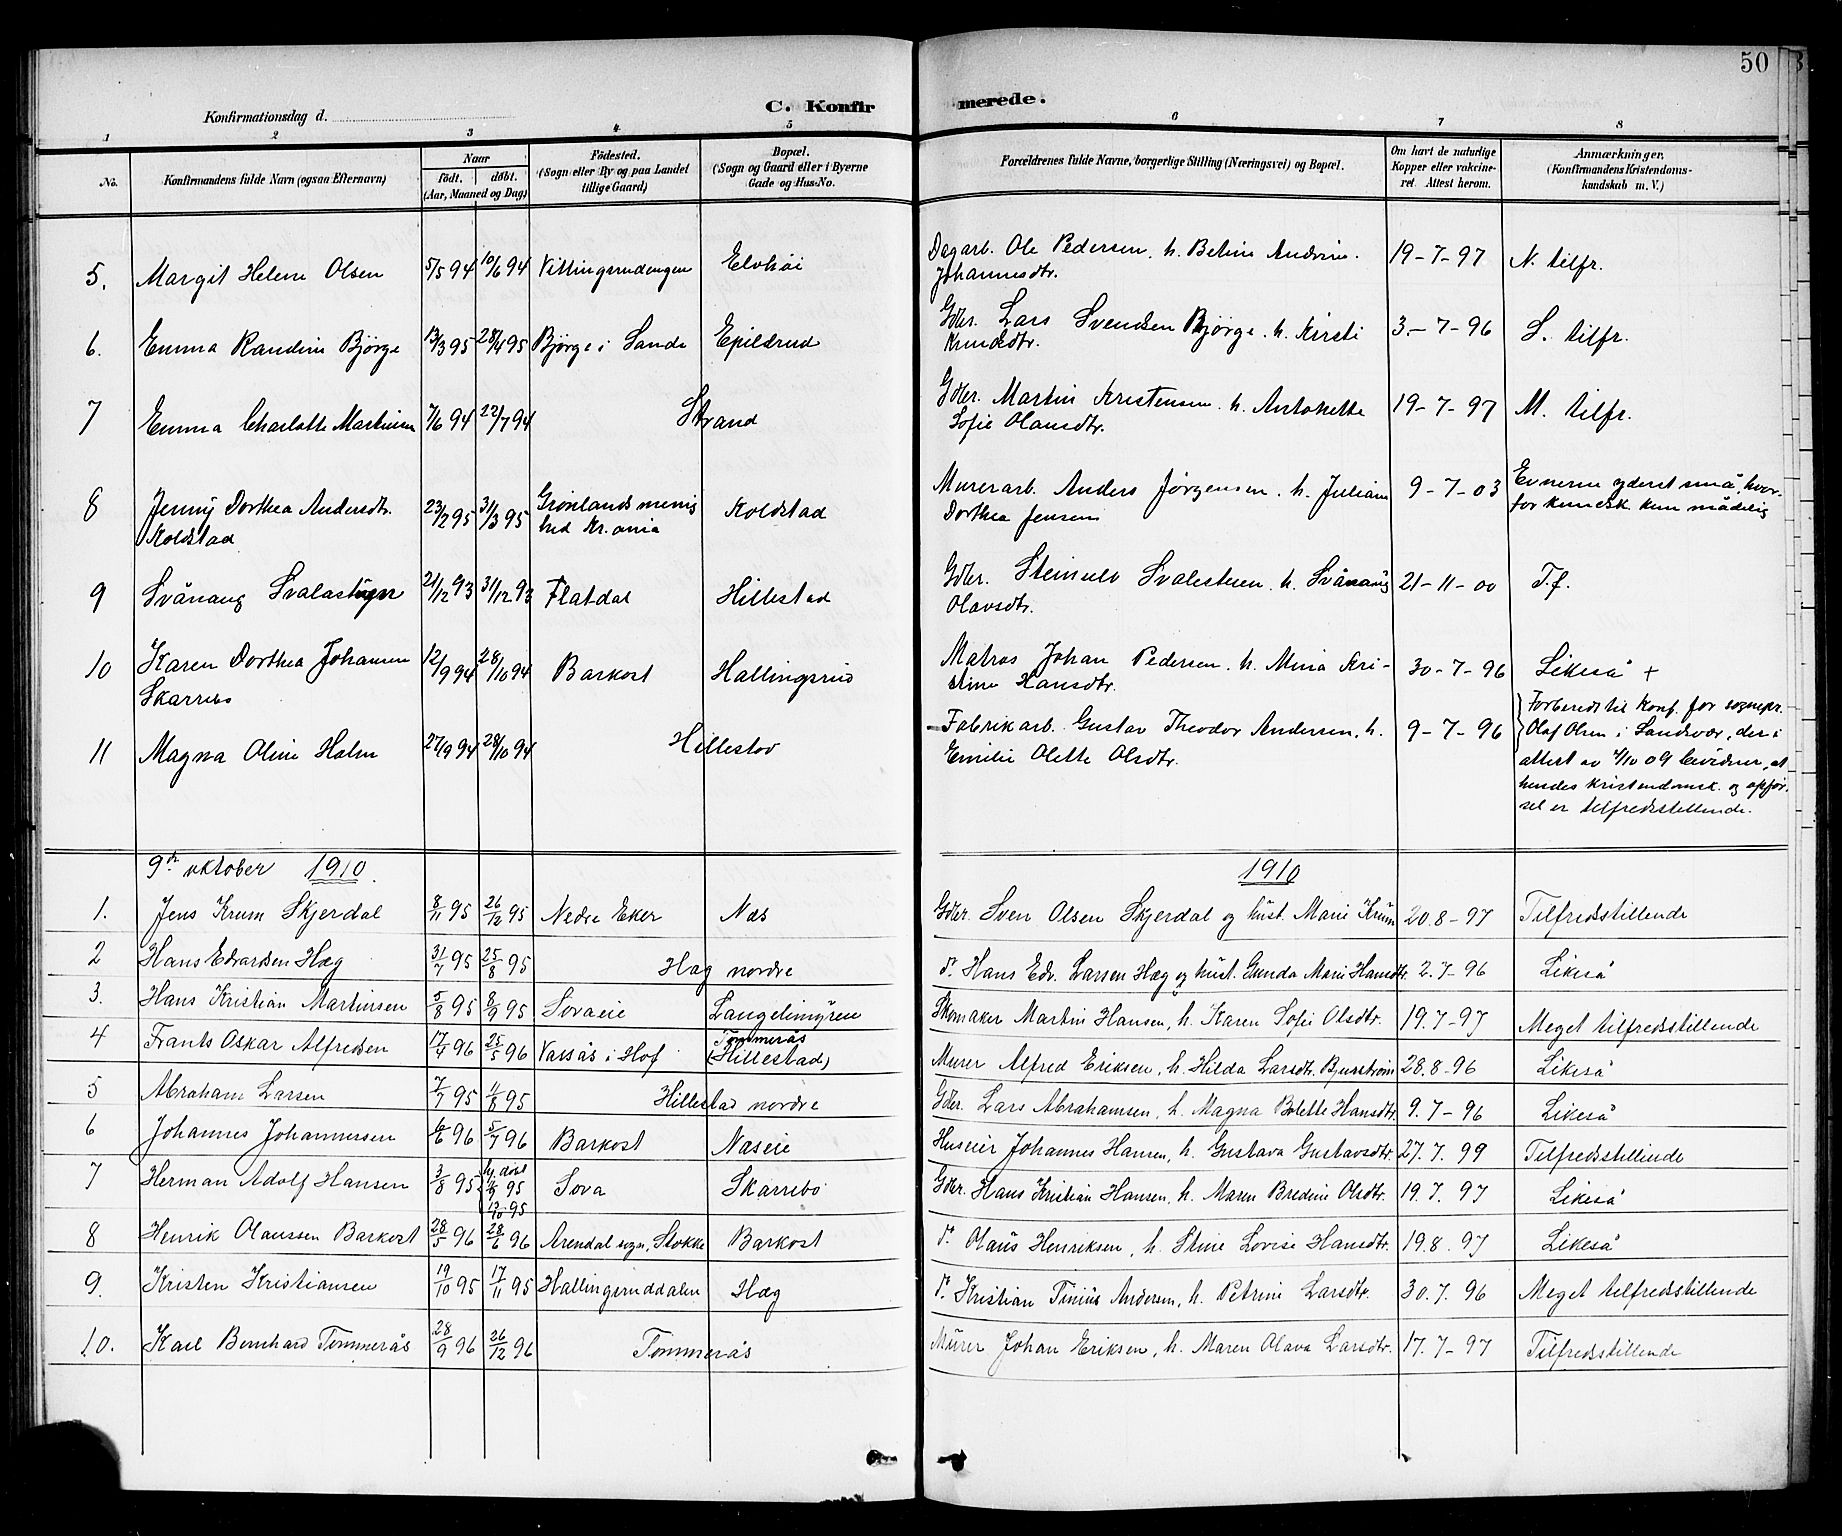 50
C. Konfirmerede.
Konfirmationsdag d.
1 2 3 4 5 6 7 8
No. Konfirmandens fulde Navn (ogsaa Efternavn) Naar født. døbt. (Aar, Maaned og Dag) Fødested. (Sogn eller By og paa Landet tillige Gaard) Bopæl. (Sogn og Gaard eller i Byerne Gade og Hus-No. Forældrenes fulde Navne, borgerlige Stilling (Næringsvei) og Bopæl. Om havt de naturlige Kopper eller vaccineret. Attest herom. Anmærkninger. (Konfirmandens Kristendomskundskab m. V.)
5. Margit Helene Olsen 5/5 94 10/6 94 Vittingsrudengen Elvhøi Dagarb. Ole Pedersen, h. Betine Andrine 19-7-97 N. tilfr.
Johannesdtr.
6. Emma Randine Bjørge 13/3 95 28/4 95 Bjørge i Sande Epildrud Gdbr. Lars Svendsen Bjørge, h. Kirsti 3.-7-96 S. tilfr.
Knudsdtr.
7 Emma Charlotte Martinsen 7/6 94 22/7 94 Strand Gdbr. Martin Kristensen, h. Antonette 19-7-97 M. tilfr.
Sofie Olausdtr.
8 Jenny Dorthea Andersdtr. 23/2 95 31/3 95 Grønlands menig Koldstad Murerarb. Anders Jørgensen, h. Juliane 9-7-03 Evnerne yderst små, hvor-
Koldstad hed Kr.ania Dorthea Jensen for kundsk. kun mådelig
9 Svånaug Svalastugen 21/12 93 31/12 93 Flatdal Hillestad Gdbr. Steinulv Svalestuen, h. Svånaug 21-11-00 T.f.
Olavsdtr.
10 Karen Dorthea Johansen 12/9 94 28/10 94 Barkost Hallingsrud Matros Johan Pedersen, h. Mina Kri- 30-7-96 Likeså +
Skarrebo stine Hansdtr.
11 Magna Oline Holm 27/9 94 28/10 94 Hillestov Fabrikarb. Gustav Theodor Andersen, h. 9-7-96 Forberedt til konf. for sognepr.
Emilie Olette Olsdtr. Olaf Olsen i Sandsvær, der i
attest av 4/10 09 bevidner, at
hendes kristendomsk. og opfør-
sel er tilfredsstillende.
9de oktober 1910. 1910
1. Jens Krum Skjerdal 8/11 95 26/12 95 Nedre Eker Næs Gdbr. Sven Olsen Skjerdal og hust. Marie Krum 20.8-97 Tilfredsstillende
2 Hans Edvardsen Hæg 31/7 95 25/8 95 Hæg nordre do. Hans Edv. Larsen Hæg og hust. Gunda Marie Hansdtr. 2.7-96 Likeså
3. Hans Kristian Martinsen 5/8 95 8/9 95 Sovaeie Langelimyren Skomaker Martin Hansen, h. Karen Sofie Olsdtr. 19.7-97 Meget tilfredsstillende
4 Frants Oskar Alfredsen 17/4 96 25/5 96 Vassås i Hof Tommerås (Hillestad) Murer Alfred Eriksen, h. Hilda Larsdtr. Bjurström 28.8-96 Likeså
5 Abraham Larsen 7/7 95 11/8 95 Hillestad nordre Gdbr. Lars Abrahamsen, h. Magna Bolette Hansdtr. 9.7-96 Likeså
6 Johannes Johannessen 6/6 96 5/7 96 Barkost Næseie Huseier Johannes Hansen, h. Gustava Gustavsdtr. 27.7.99 Tilfredsstillende
7 Herman Adolf Hansen 3/8 95 hj. døbt 1/9 95 13/10 95 Sova Skarrebo Gdbr. Hans Kristian Hansen, h. Maren Bredine Olsdtr. 19.7.97 Likeså
8 Henrik Olaussen Barkost 28/5 96 28/6 96 Arendal sogn, Stokke Barkost do. Olaus Henriksen, h. Stine Lovise Hansdtr. 19.8.97 Likeså
9. Kristen Kristiansen 19/10 95 17/11 95 Hallingsruddalen Hæg do. Kristian Tinius Andersen, h. Petrine Larsdtr. 30.7.96 Meget tilfredsstillende
10. Karl Bernhard Tommerås 28/9 96 26/12 96 Tommerås Murer Johan Eriksen, h. Maren Olava Larsdtr. 17.7-97 Tilfredsstillende